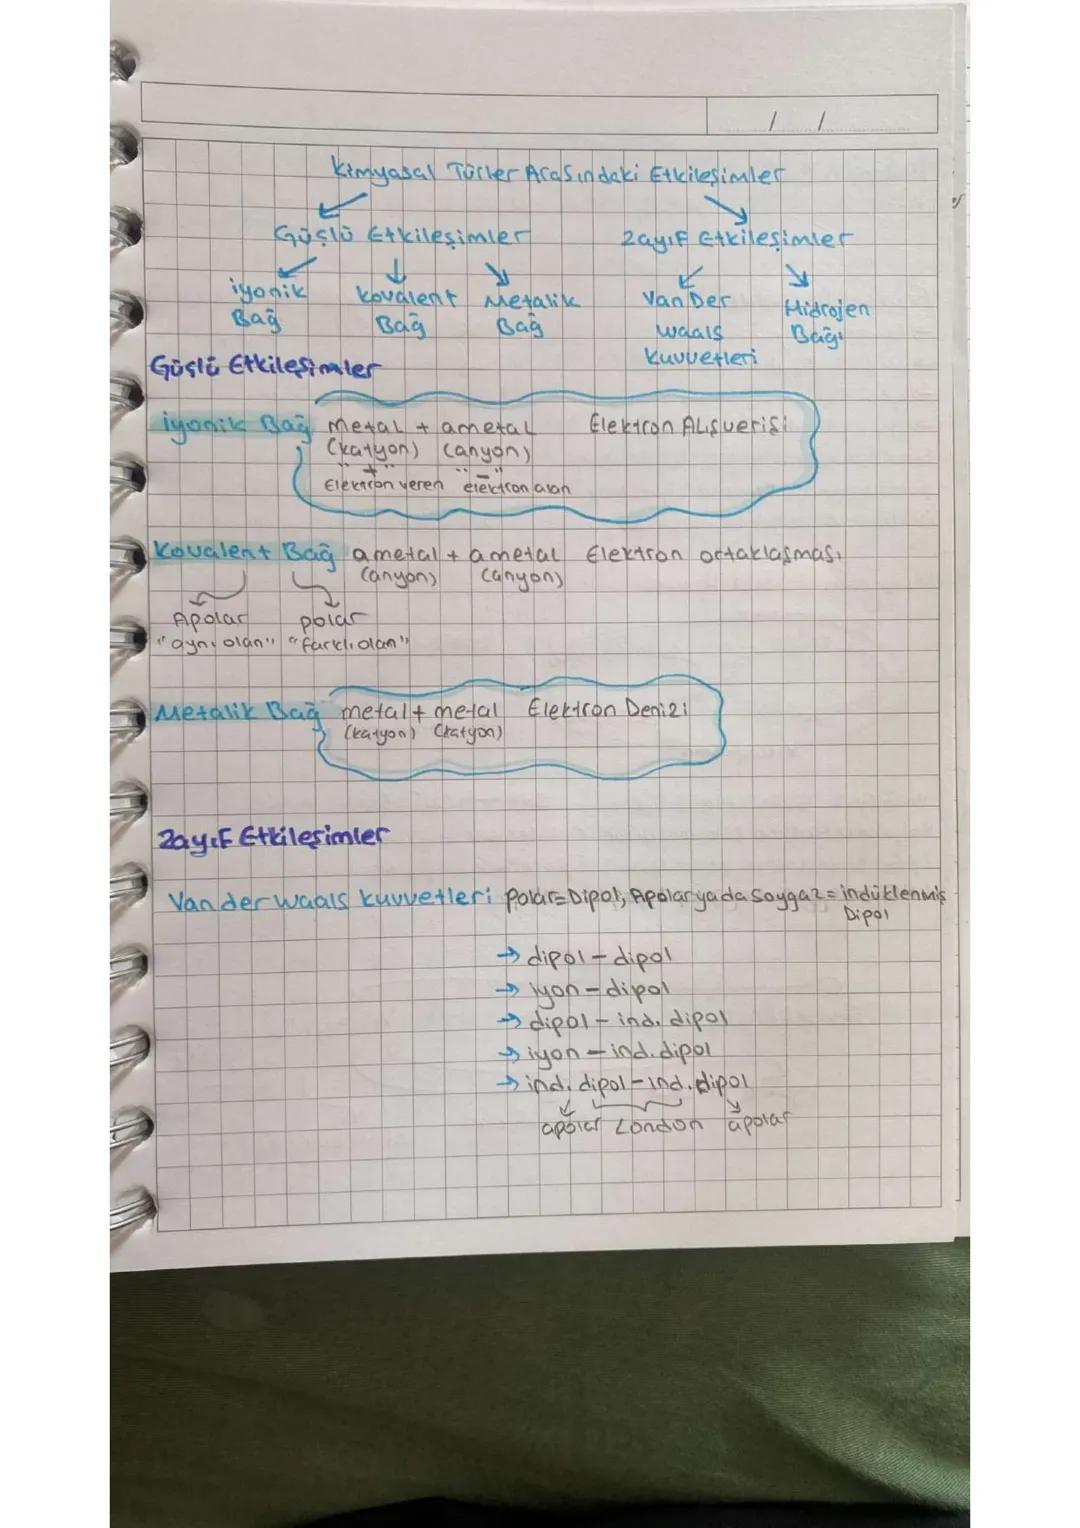 / /
Kimyasal Türler Arasındaki Etkileşimler
Güçlü Etkileşimler Zayıf Etkileşimler
iyonik Bağ Kovalent Bağ Metalik Bağ Van Der Waals Kuvvetleri Hidrojen Bağı
Güçlü Etkileşimler
iyonik Bağ metal + ametal Elektron Alışverişi
(katyon) (anyon)
"+" "-"
Elektron veren elektron alan
Kovalent Bağ ametal + ametal Elektron ortaklaşması
(anyon) (anyon)
Apolar polar
"aynı olan" "farklı olan"
Metalik Bağ metal + metal Elektron Denizi
(katyon) (katyon)
Zayıf Etkileşimler
Van der Waals kuvvetleri Polar=Dipol, Apolar ya da Soygaz = indüklenmiş
Dipol
→ dipol - dipol
→ iyon - dipol
→ dipol - ind. dipol
→ iyon - ind. dipol
→ ind. dipol - ind. dipol
apolar London apolar